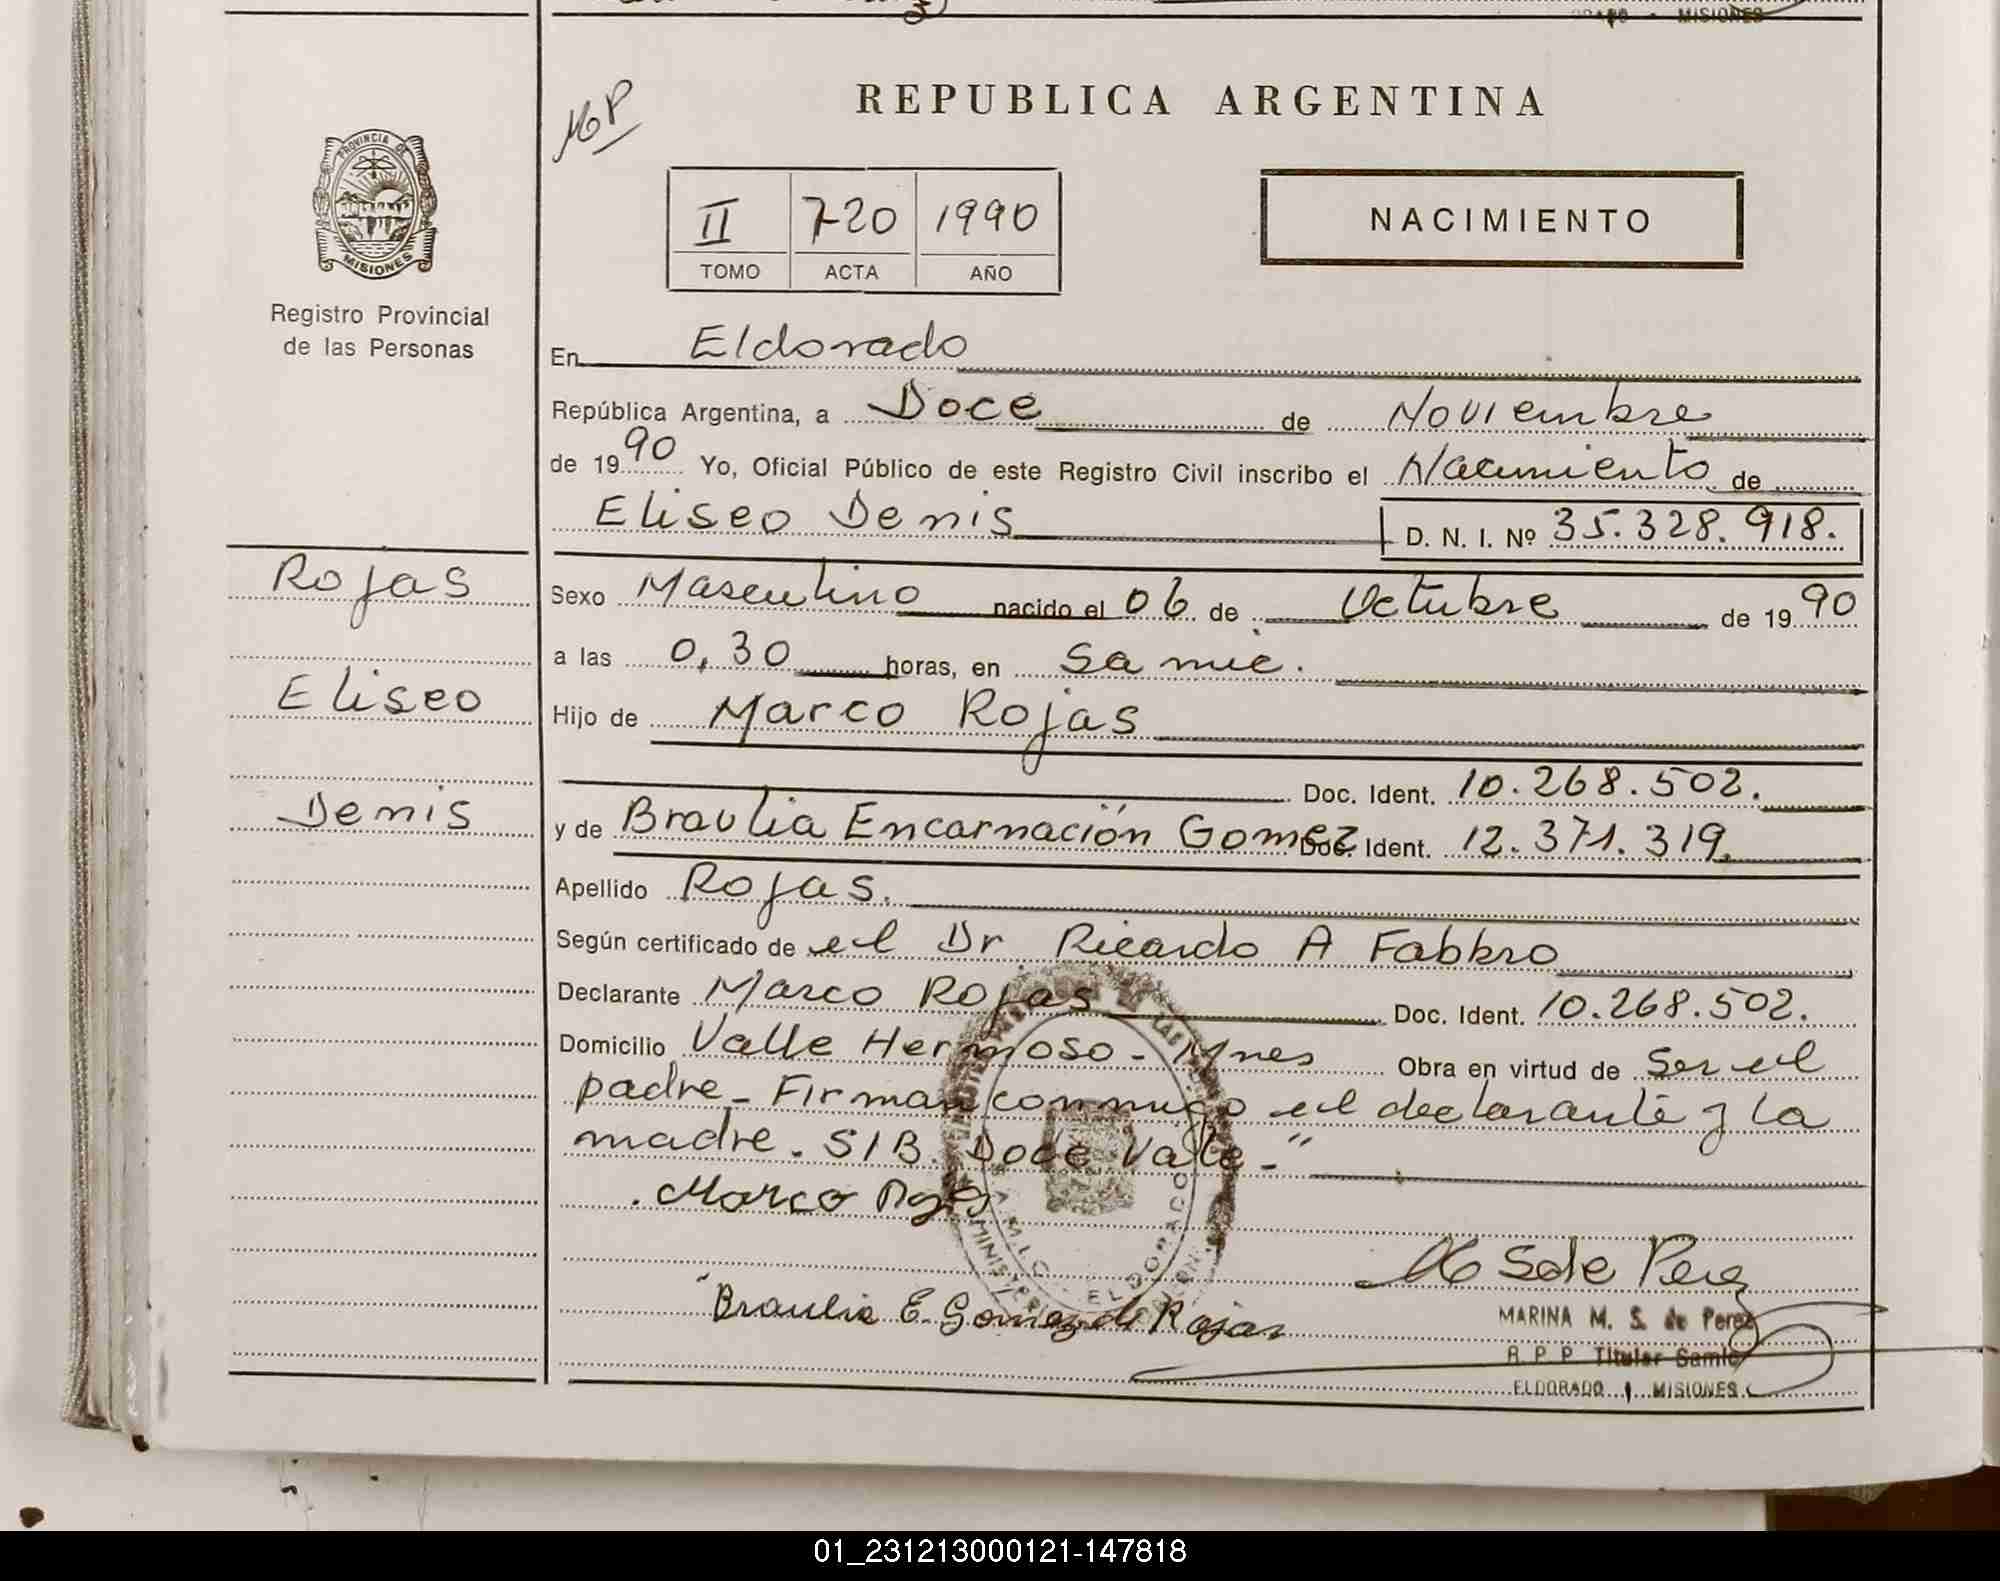 MISIONES
REPUBLICA ARGENTINA
PROVINCIA DE
MISIONES
Registro Provincial
de las Personas
II 720 1990
TOMO ACTA AÑO
NACIMIENTO
En Eldorado
República Argentina, a Doce de Noviembre
de 1990 Yo, Oficial Público de este Registro Civil inscribo el Nacimiento de
Eliseo Denis D. N. I. Nº 35.328.918.
Rojas
Eliseo
Denis
Sexo Masculino nacido el 06 de Octubre de 1990
a las 0,30 horas, en Samic.
Hijo de Marco Rojas
Doc. Ident. 10.268.502.
y de Braulia Encarnación Gomez Doc. Ident. 12.371.319.
Apellido Rojas.
Según certificado de el Dr Ricardo A Fabbro
Declarante Marco Rojas Doc. Ident. 10.268.502.
Domicilio Valle Hermoso - Mnes Obra en virtud de Ser el
padre - Firman conmigo el declarante y la
madre. S/B. Doce Vale - "
Marco Rojas
S de Perez
Braulia E. Gomez de Rojas
MARINA M. S. de Perez
R. P. P. Titular Samic
ELDORADO MISIONES
ELDORADO
01_231213000121-147818